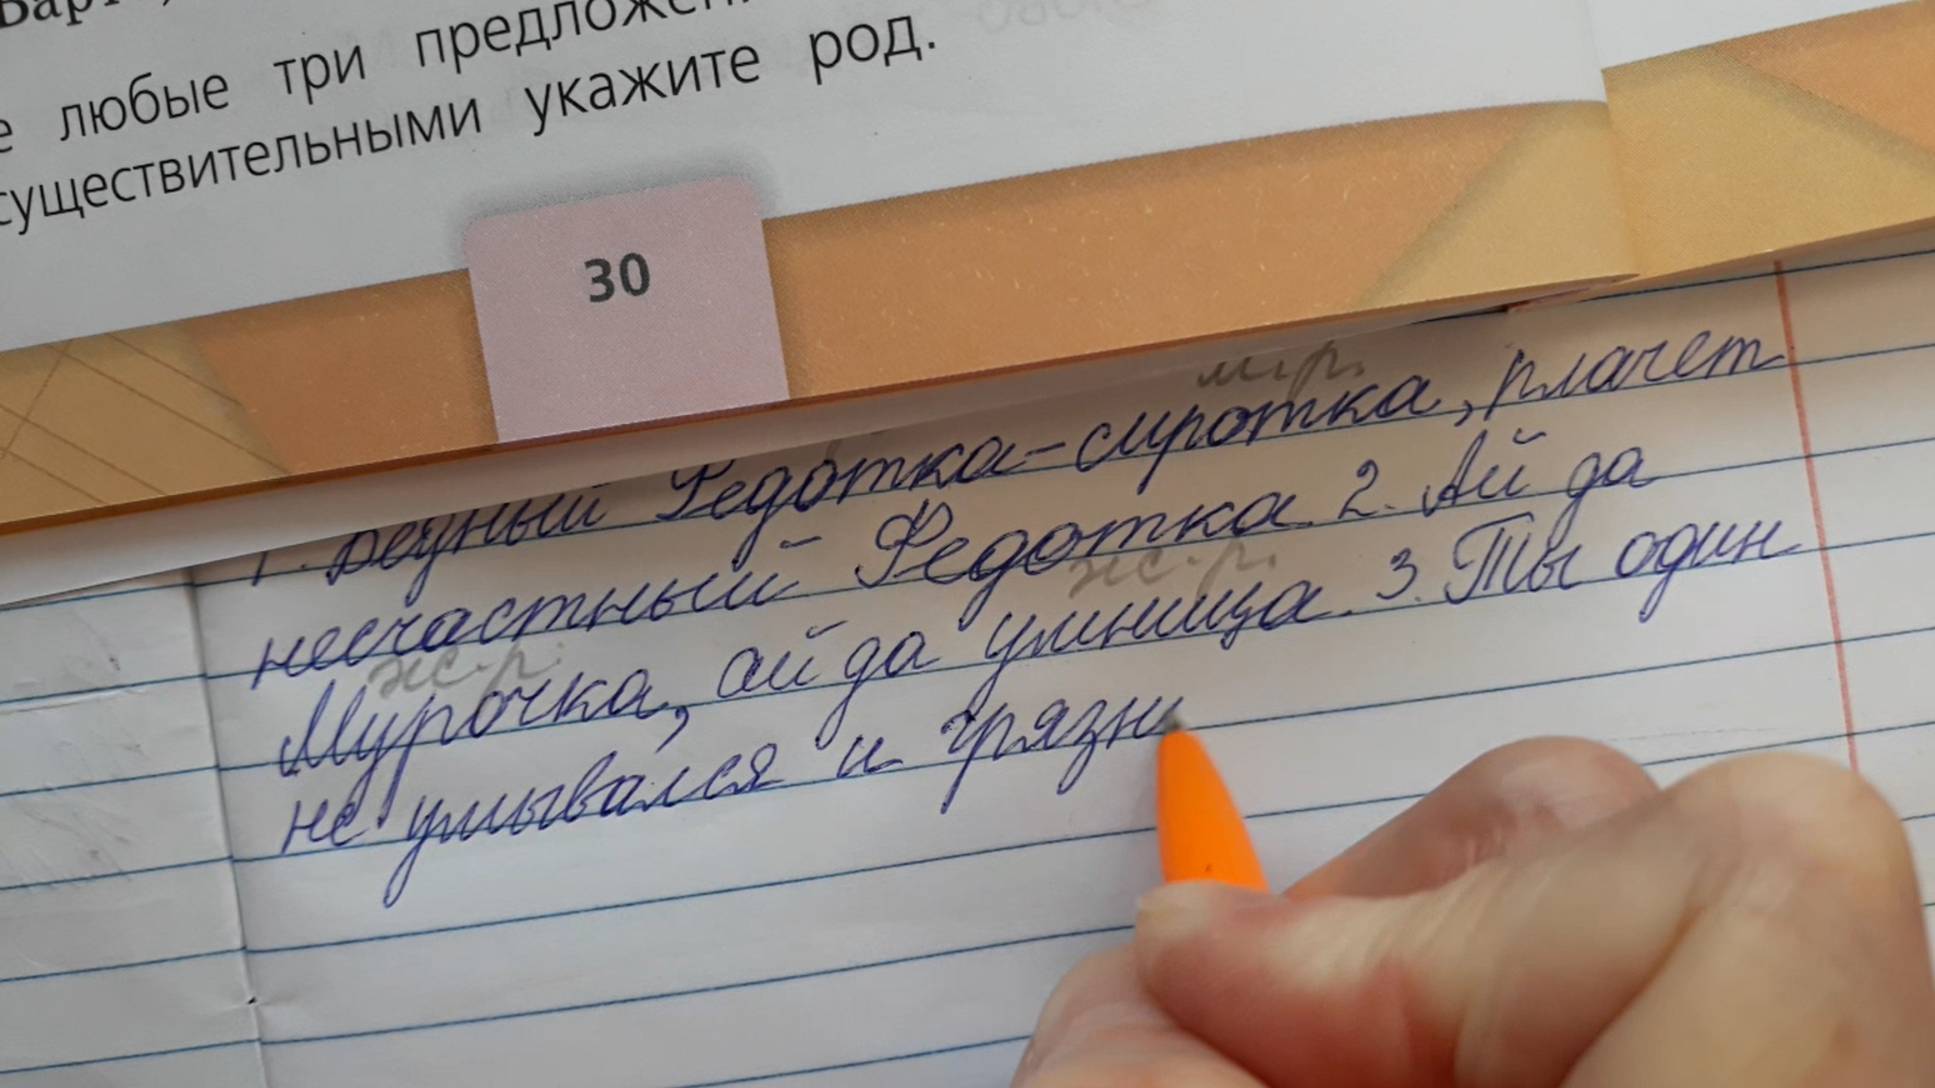 любые три
существительными укажите род.
30
м.р.
1. Бедный Федотка-сиротка, плачет
несчастный Федотка. 2. Ай да
ж.р. ж.р.
Мурочка, ай да умница. 3. Ты один
не умывался и грязн